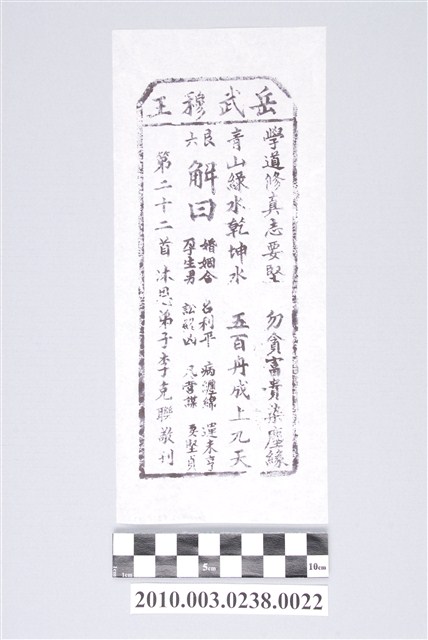 岳武穆王
學道修真志要堅 勿貪富貴染塵緣
青山綠水乾坤水 五百丹成上九天
艮六
解曰
婚姻合 呂利平 病遲緣 運未亨
孕生男 訟終凶 凡營謀 要堅貞
第二十二首 沐恩弟子李克聯敬刊
1cm 5cm 10cm
2010.003.0238.0022